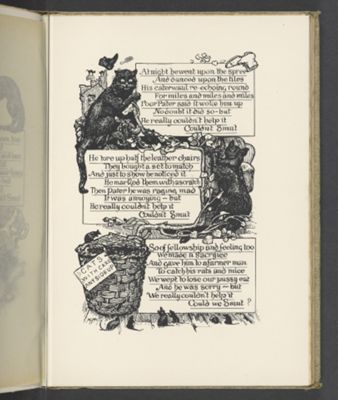 At night he went upon the spree
And danced upon the tiles
His caterwaul re-echoing round
For miles and miles and miles
Poor Pater said it woke him up
No doubt it did so - but
He really couldn't help it
Couldn't Smut
He tore up half the leather chairs
They bought a set to match
And just to show he noticed it
He marked them with a scratch
Then Pater he was raging mad
It was annoying - but
He really couldn't help it
Couldn't Smut
So of fellowship and feeling too
We made a sacrifice
And gave him to a farmer man
To catch his rats and mice
We wept to lose our pussy
And he was sorry - but
We really couldn't help it
Could we Smut?
CATS
WITH CARE